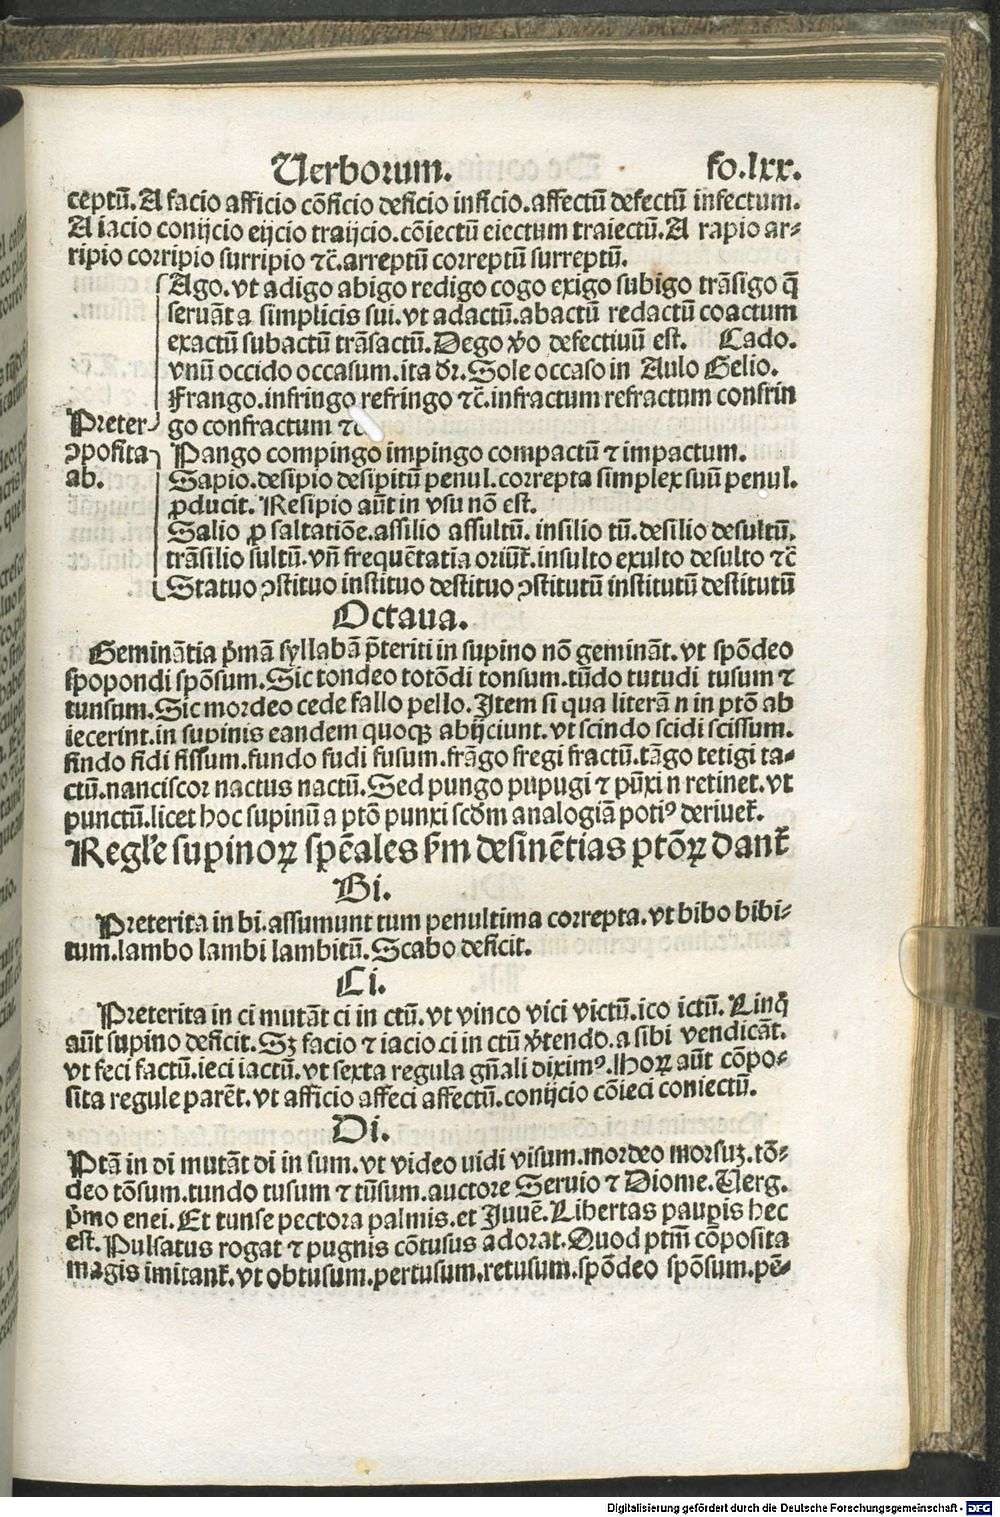 Verborum. fo.lxx.
ceptū. A facio afficio cōficio deficio inficio. affectū defectū infectum.
A iacio conijcio eijcio traijcio. cōiectū eiectum traiectū. A rapio ar⸗
ripio corripio surripio ⁊c̄. arreptū correptū surreptū.
Ago. vt adigo abigo redigo cogo exigo subigo trāsigo q̄
seruāt a simplicis sui. vt adactū. abactū redactū coactum
exactū subactū trāsactū. Dego v̄o defectiuū est. Cado.
vnū occido occasum. ita dr̄. Sole occaso in Aulo Gelio.
Frango. infringo refringo ⁊c̄. infractum refractum confrin
Preter⸗ go confractum ⁊c
ꝯposita Pango compingo impingo compactū ⁊ impactum.
ab. Sapio. desipio desipitū penul. correpta simplex suū penul.
ꝓducit. Resipio aūt in vsu nō est.
Salio ꝓ saltatiōe. assilio assultū. insilio tū. desilio desultū.
trāsilio sultū. vn̄ frequētatīa oriūt̄. insulto exulto desulto ⁊c̄
Statuo ꝯstituo instituo destituo ꝯstitutū institutū destitutū
Octaua.
Geminātia pͥmā syllabā p̄teriti in supino nō gemināt. vt spōdeo
spopondi spōsum. Sic tondeo totōdi tonsum. tūdo tutudi tusum ⁊
tunsum. Sic mordeo cede fallo pello. Item si qua literā n in ptō ab
iecerint. in supinis eandem quoqꝫ abijciunt. vt scindo scidi scissum.
findo fidi fissum. fundo fudi fusum. frāgo fregi fractū. tāgo tetigi ta⸗
ctū. nanciscor nactus nactū. Sed pungo pupugi ⁊ pūxi n retinet. vt
punctū. licet hoc supinū a ptō punxi scd̄m analogiā potiꝰ deriuet̄.
Regule supinoꝝ sp̄eales s̄m desinētias p̄tōꝝ dant̄
Bi.
Preterita in bi. assumunt tum penultima correpta. vt bibo bibi⸗
tum. lambo lambi lambitū. Scabo deficit.
Ci.
Preterita in ci mutāt ci in ctū. vt vinco vici victū. ico ictū. Linq̄
aūt supino deficit. Sꝫ facio ⁊ iacio ci in ctū v̄tendo. a sibi vendicāt.
vt feci factū. ieci iactū. vt sexta regula gn̄ali diximꝰ. Horꝝ aūt cōpo⸗
sita regule parēt. vt afficio affeci affectū. conijcio cōieci coniectū.
Di.
Ptā in di mutāt di in sum. vt video uidi visum. mordeo morsuꝫ. tō⸗
deo tōsum. tundo tusum ⁊ tūsum. auctore Seruio ⁊ Diome. Uerg.
pͥmo enei. Et tunse pectora palmis. et Juuē. Libertas paupis hec
est. Pulsatus rogat ⁊ pugnis cōtusus adorat. Quod ptm̄ cōposita
magis imitant̄. vt obtusum. pertusum. retusum. spōdeo spōsum. pē⸗
Digitalisierung gefördert durch die Deutsche Forschungsgemeinschaft - DFG